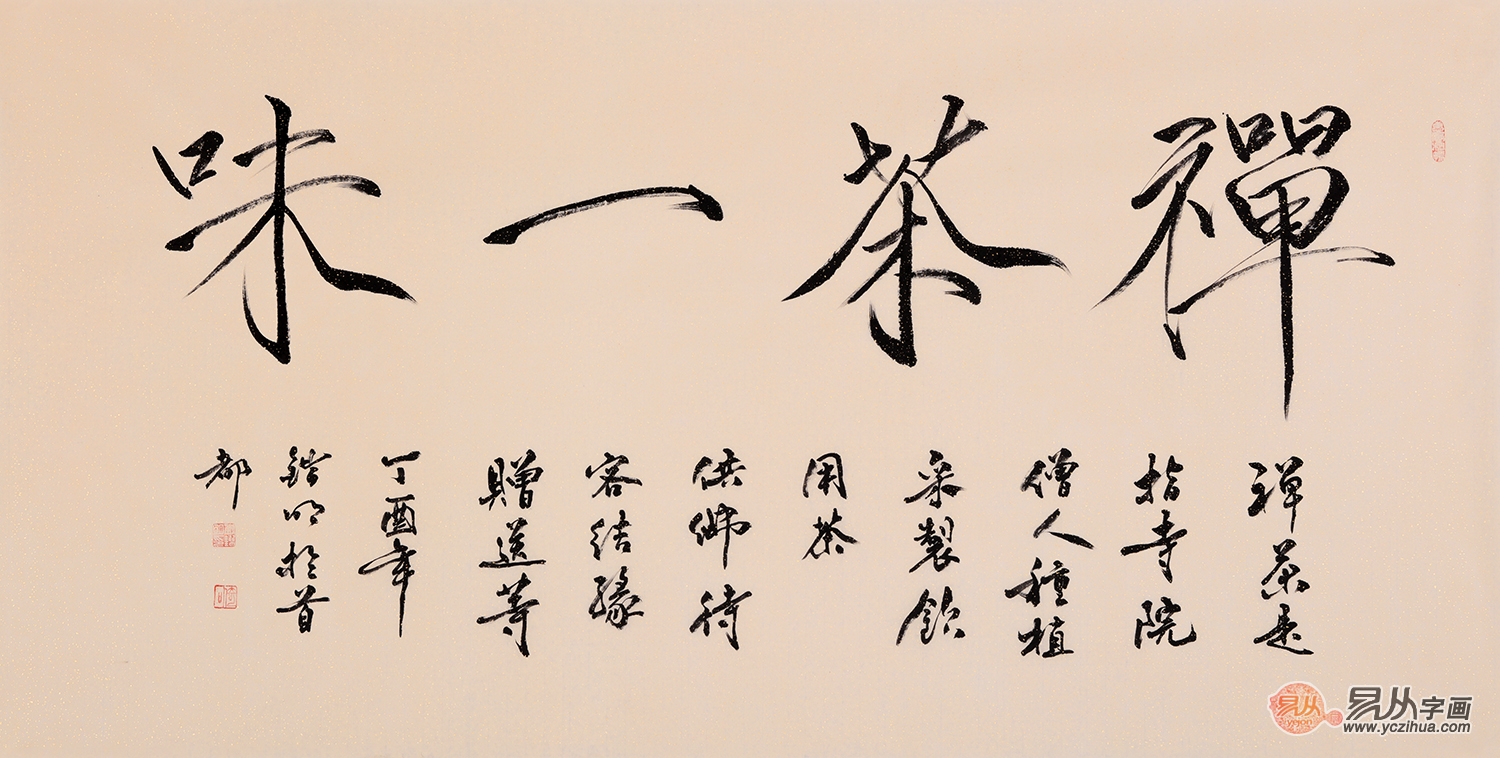 禪茶一味
禪茶是
指寺院
僧人種植
采製飲
用茶
供佛待
客結緣
贈送等
丁酉年
明於首
都
易从字画
yicon
www.yczihua.com